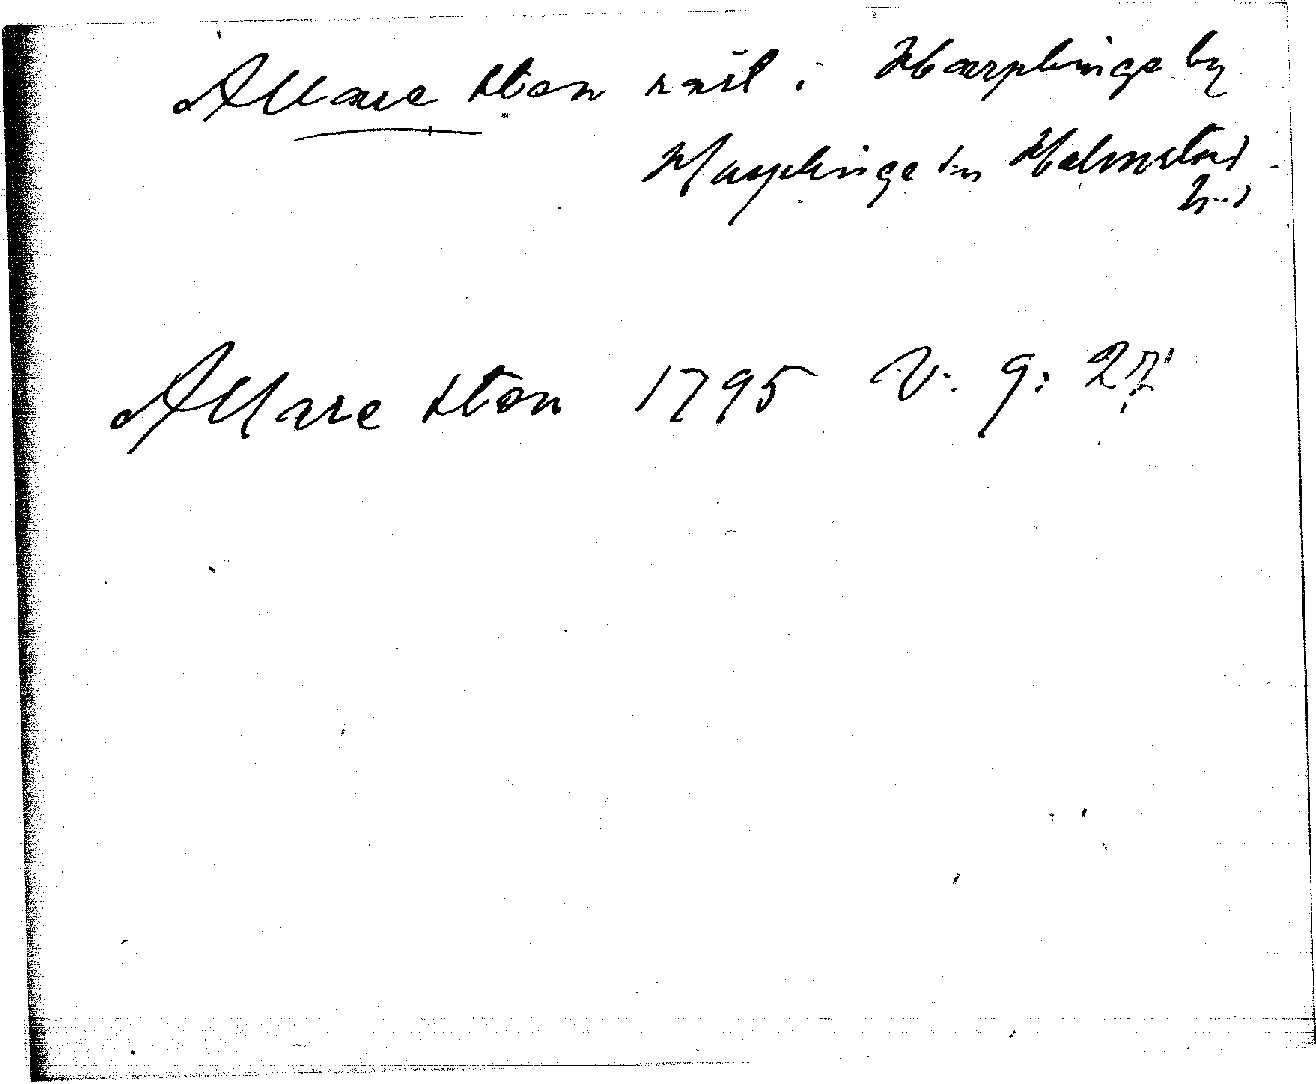 Allare sten röst i Harplinge by
Harplinge sn Halmstad
hd
Allare sten 1795 V. g: 27